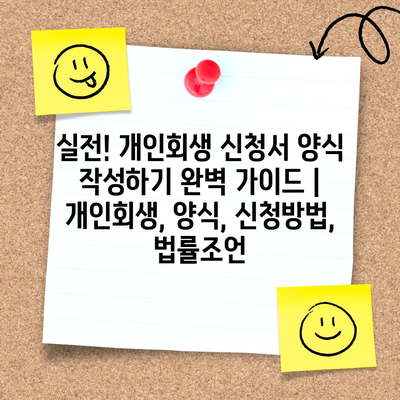 실전! 개인회생 신청서 양식
작성하기 완벽 가이드 |
개인회생, 양식, 신청방법,
법률조언